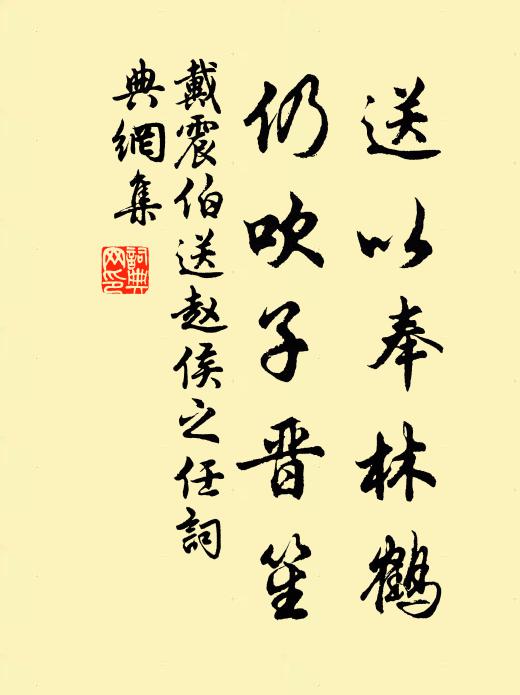 送以奉林鶴
仍吹子晋笙
戴震伯送赵侯之任詞
典網集
詞典
网印